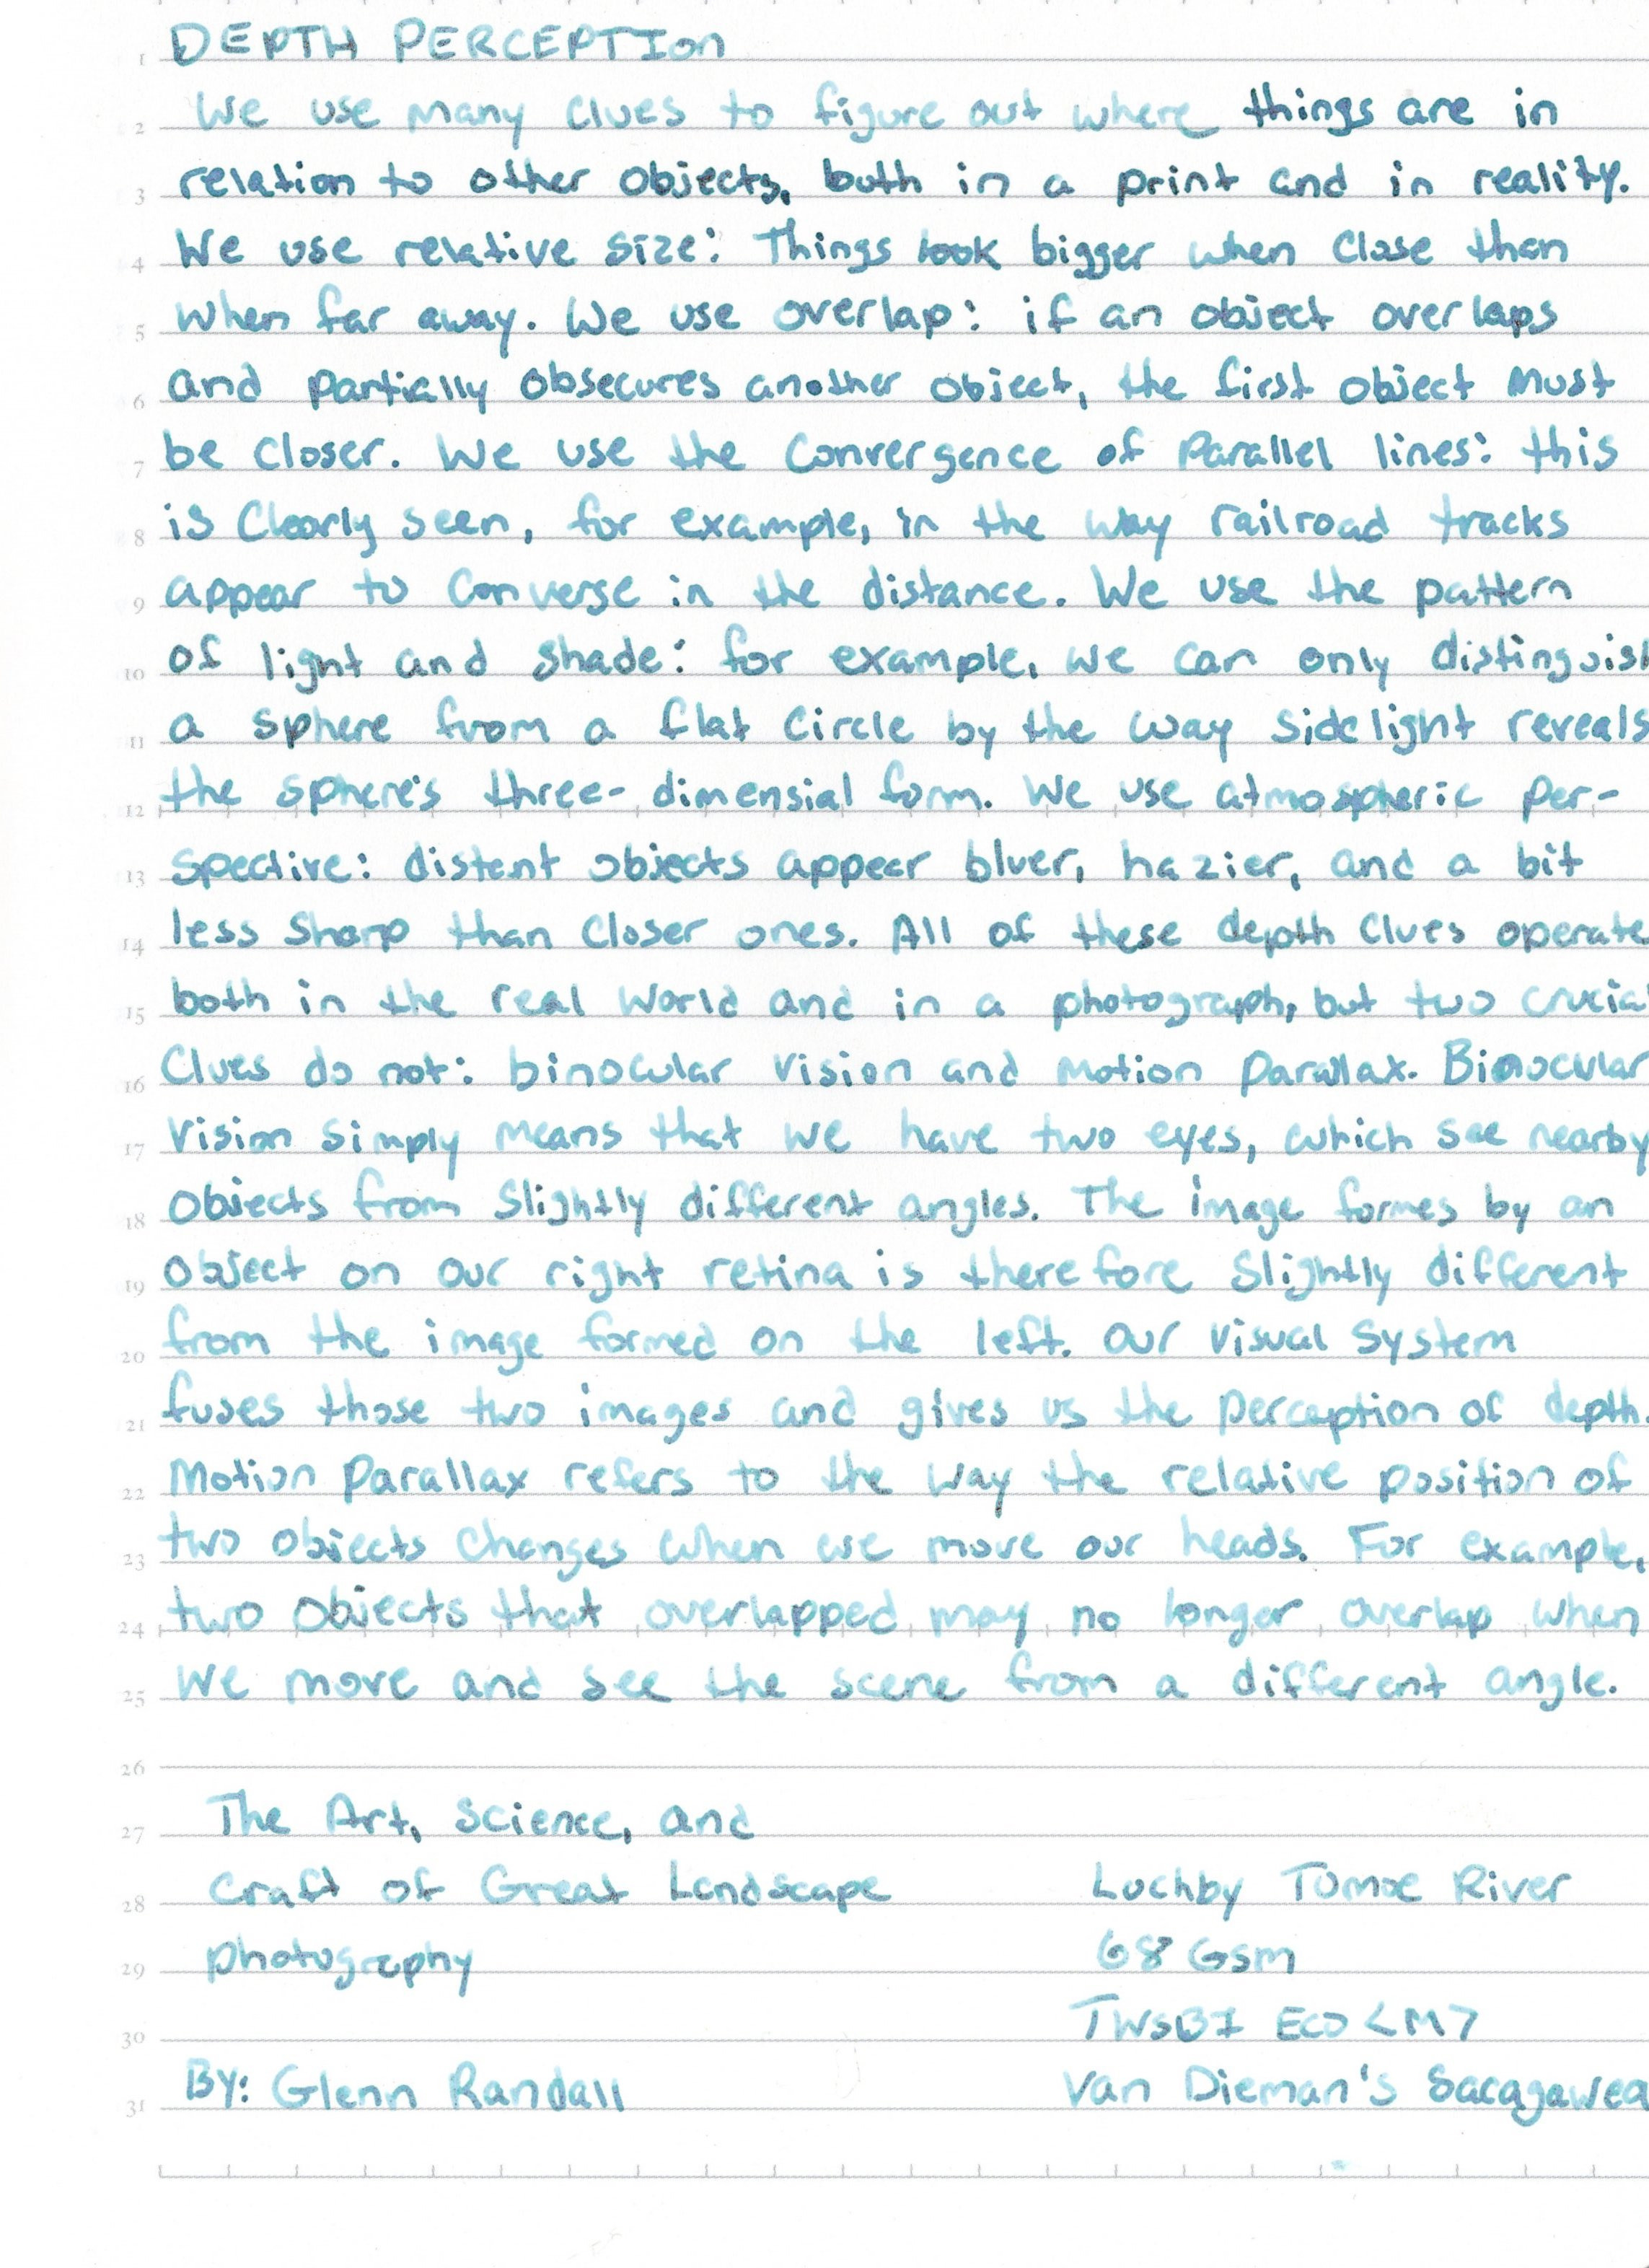 DEPTH PERCEPTION
1
We use many clues to figure out where things are in
2
relation to other objects, both in a print and in reality.
3
We use relative size: Things look bigger when close than
4
when far away. We use overlap: if an object overlaps
5
and partially obsecures another object, the first object must
6
be closer. We use the convergence of parallel lines: this
7
is clearly seen, for example, in the way railroad tracks
8
appear to converge in the distance. We use the pattern
9
of light and shade: for example, we can only distinguish
10
a sphere from a flat circle by the way sidelight reveals
11
the sphere's three-dimensial form. We use atmospheric per-
12
spective: distent objects appear bluer, hazier, and a bit
13
less sharp than closer ones. All of these depth clues operate
14
both in the real world and in a photograph, but two crucial
15
clues do not: binocular vision and motion parallax. Binocular
16
vision simply means that we have two eyes, which see nearby
17
objects from slightly different angles. The image formes by an
18
object on our right retina is therefore slightly different
19
from the image formed on the left. Our visual system
20
fuses those two images and gives us the perception of depth.
21
Motion parallax refers to the way the relative position of
22
two objects changes when we move our heads. For example,
23
two objects that overlapped may no longer overlap when
24
we move and see the scene from a different angle.
25
26
The Art, Science, and
27
Craft of Great Landscape
28
Photography
29
30
By: Glenn Randall
31
Lochby Tomoe River
68 Gsm
TWSBI ECO <M>
Van Dieman's Sacagawea